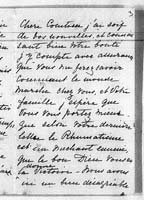 3
Chère Comtesse, j'ai soif
de vos nouvelles, et connais
sant bien votre bonté
j'y compte avec assurance
que vous me ferez savoir
comment le monde
marche chez vous, et Votre
famille; espère que
vous vous portez mieux
que selon votre dernière
lettre. Le Rhumatisme
est un méchant ennemi
que le bon Dieu vous
donne
la Victoire. Nous avons
un bien désagréable